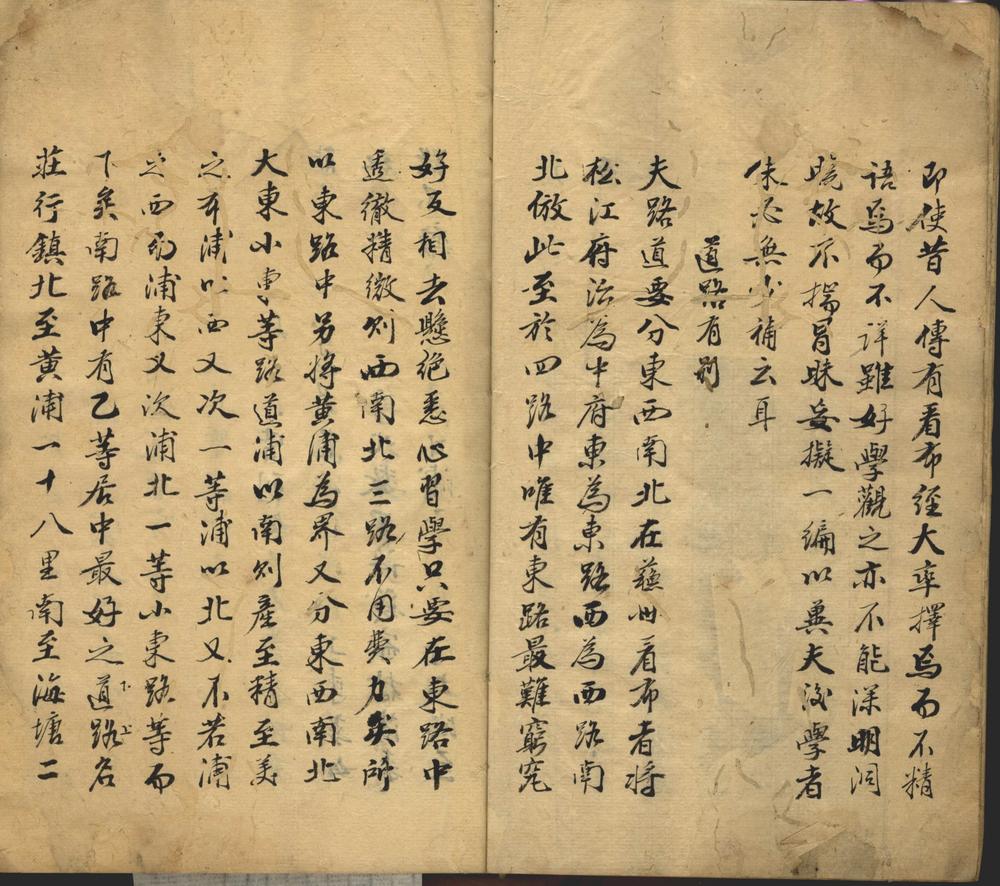 即使昔人傳有看布經大率擇焉而不精
語焉而不詳雖好學觀之亦不能深明洞
曉故不揣冒昧妄擬一編以冀夫後學者
未必無小補云耳
道路有別
夫路道要分東西南北在蘇州看布者將
松江府治為中府東為東路西為西路南
北倣此至於四路中唯有東路最難窮究
好歹相去懸絕悉心習學只要在東路中
透徹精微則西南北三路不用費力矣所
以東路中另將黃浦為界又分東西南北
大東小東等路道浦以南則產至精至美
之布浦以西又次一等浦以北又不若浦
之西而浦東又次浦北一等小東路等而
下矣南路中有乙等居中最好之道路名
莊行鎮北至黃浦一十八里南至海塘二